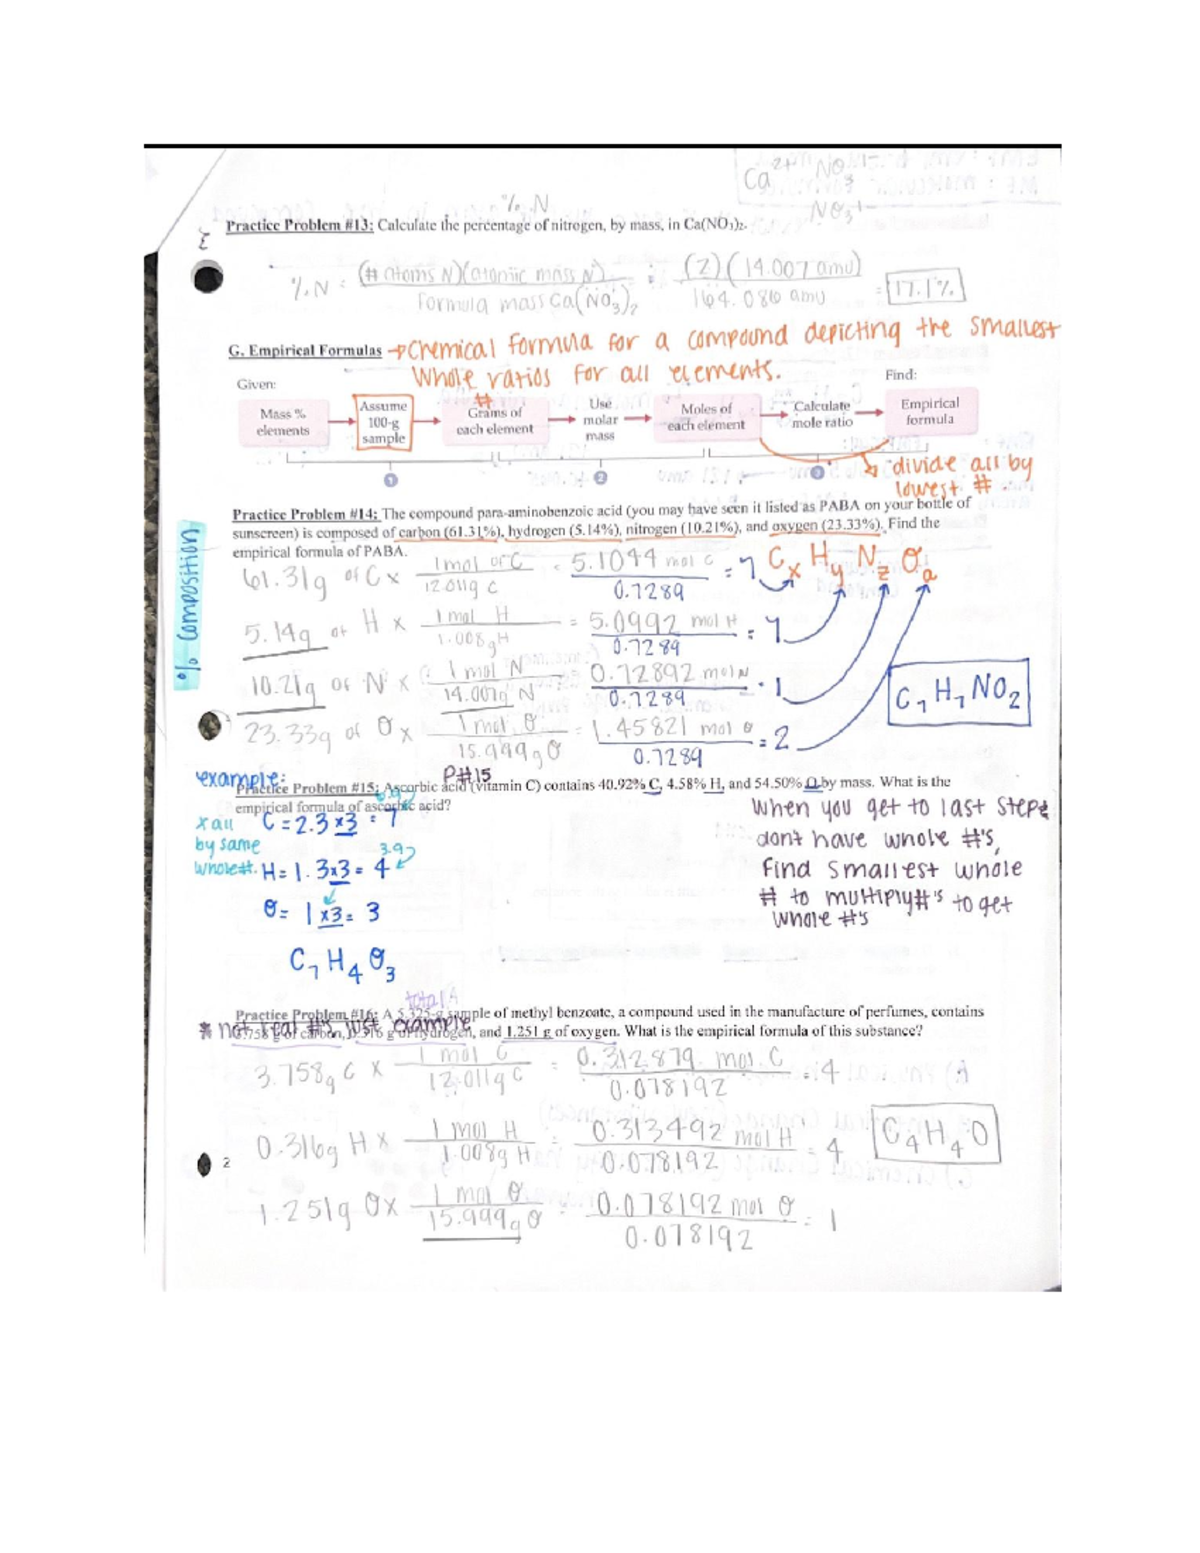 Ca 2+ NO3
NO3 1-
% N
Practice Problem #13: Calculate the percentage of nitrogen, by mass, in Ca(NO3)2.
% N = (# atoms N)(atomic mass N) / Formula mass Ca(NO3)2 = (2)(14.007 amu) / 164.086 amu = 17.1%
G. Empirical Formulas → Chemical formula for a compound depicting the smallest
whole ratios for all elements.
Given:
Find:
Mass % elements → Assume 100-g sample → # Grams of each element → Use molar mass → Moles of each element → Calculate mole ratio → Empirical formula
1 2 3
divide all by
lowest #
% composition
Practice Problem #14: The compound para-aminobenzoic acid (you may have seen it listed as PABA on your bottle of
sunscreen) is composed of carbon (61.31%), hydrogen (5.14%), nitrogen (10.21%), and oxygen (23.33%). Find the
empirical formula of PABA.
61.31g of C x 1 mol of C / 12.011g C = 5.1044 mol C / 0.7289 = 7 Cx Hy Nz Oa
5.14g of H x 1 mol H / 1.008g H = 5.0992 mol H / 0.7289 = 7
10.21g of N x 1 mol N / 14.007g N = 0.72892 mol N / 0.7289 = 1
C7H7NO2
23.33g of O x 1 mol O / 15.999g O = 1.45821 mol O / 0.7289 = 2
example:
P#15
Practice Problem #15: Ascorbic acid (vitamin C) contains 40.92% C, 4.58% H, and 54.50% O by mass. What is the
empirical formula of ascorbic acid?
x all
by same
whole #.
6.9
C = 2.3 x3 = 7
3.9
H = 1.3x3 = 4
O = 1 x3 = 3
C7H4O3
When you get to last step &
dont have whole #'s,
find smallest whole
# to multiply #'s to get
whole #'s
total
Practice Problem #16: A 5.325-g sample of methyl benzoate, a compound used in the manufacture of perfumes, contains
* not real #'s, just example
3.758 g of carbon, 0.316 g of hydrogen, and 1.251 g of oxygen. What is the empirical formula of this substance?
3.758g C x 1 mol C / 12.011g C = 0.312879 mol C / 0.078192 = 4
0.316g H x 1 mol H / 1.008g H = 0.313492 mol H / 0.078192 = 4
C4H4O
2
1.251g O x 1 mol O / 15.999g O = 0.078192 mol O / 0.078192 = 1